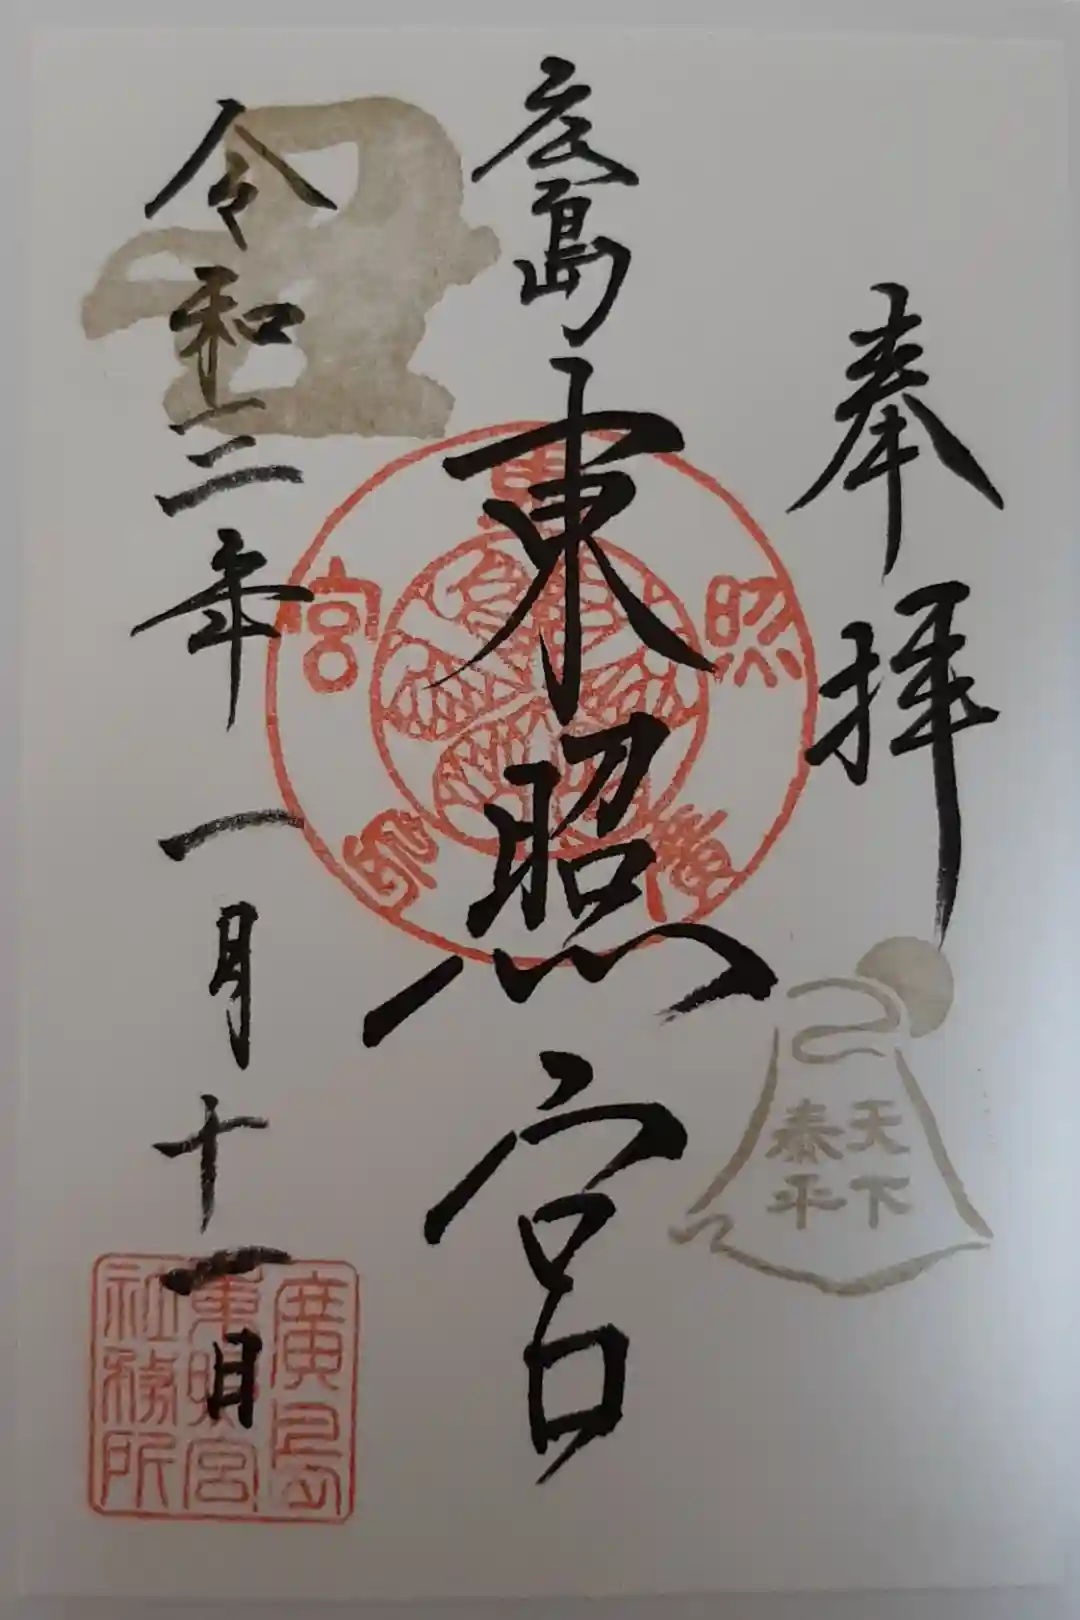 奉拝
天下
泰平
広島東照宮
東照宮廣島
丑
令和三年一月十一日
廣島
東照宮
社務所